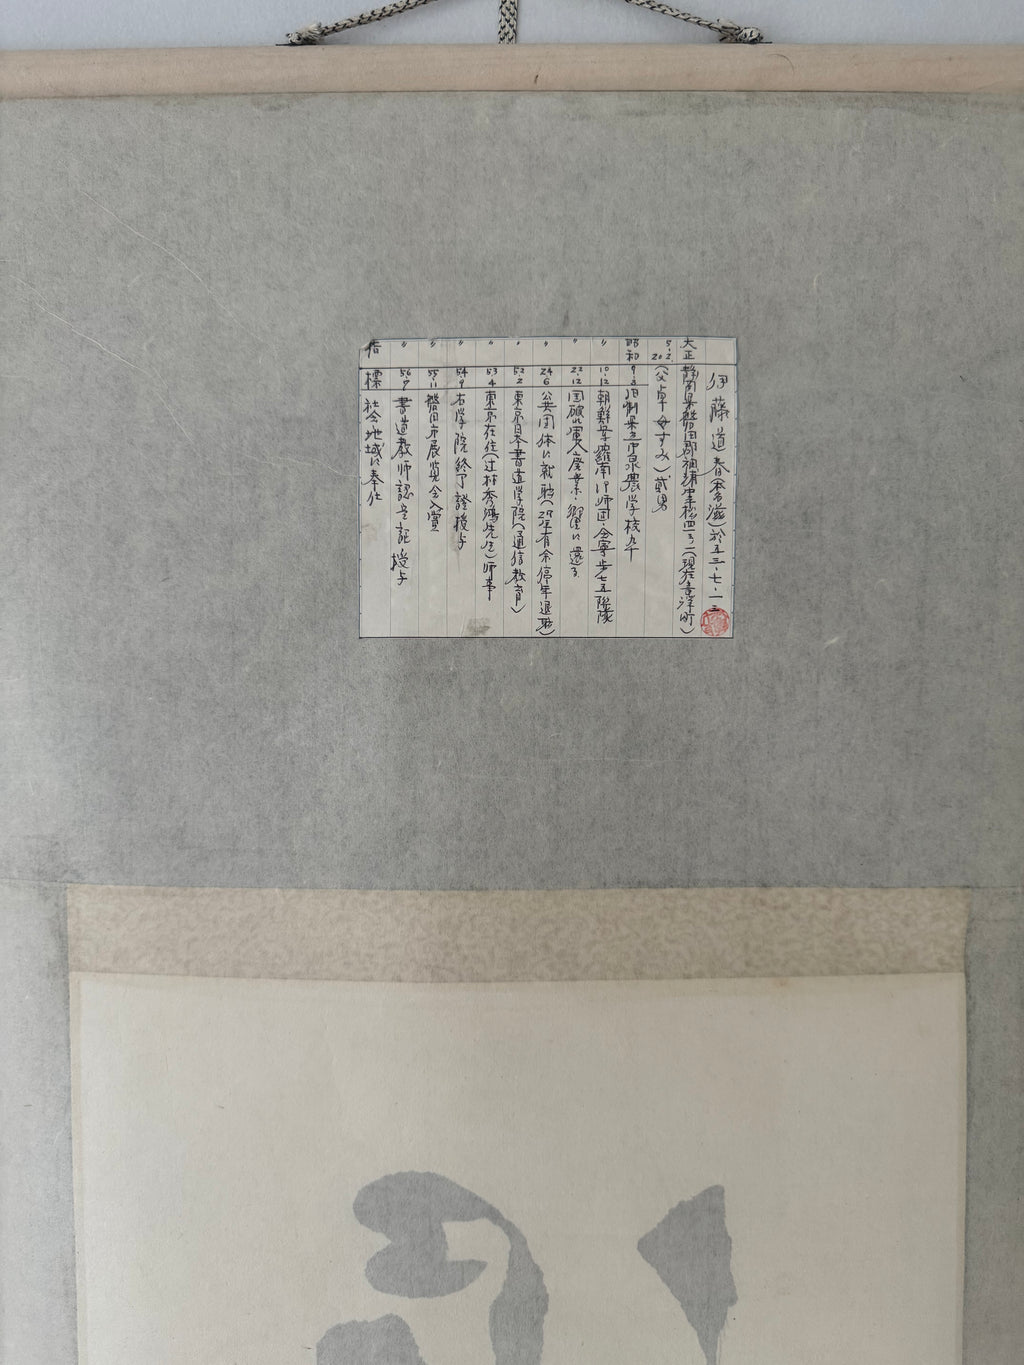 伊藤道春(春滋)於五三・七・一三
大正 5.2.20 静岡県磐田郡袖浦村(現在竜洋町)
(父卓 母すみ)貳男
昭和 9.3 旧制県立中泉農学校卒
〃 10.12 朝鮮 羅南 師団 会寧歩七五聯隊
〃 22.12 国破れ軍人廃業 郷に還る
〃 24.6 公共団体に就職(29年有余停年退職)
〃 52.2 東京日本書道学院(通信教育)
〃 53.4 東京在住(辻村秀鴻先生)師事
〃 54.9 右学院終了證授与
〃 55.11 磐田市展覧会入賞
〃 56.9 書道教師認定証授与
指標 社会地域に奉仕